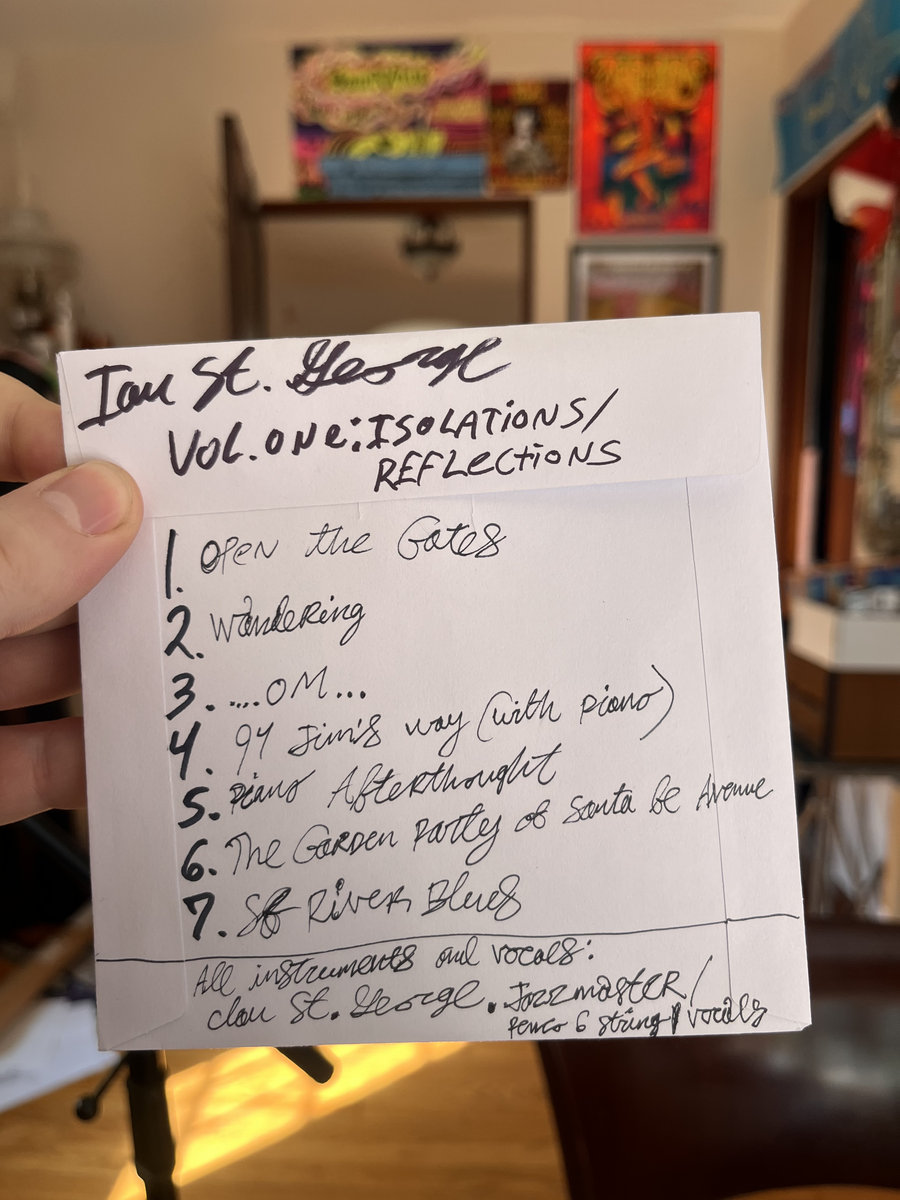 Ian St. George
Vol. ONe: ISOLATiONS/
REFLectiONS
1. OPEN the Gates
2. WandeRing
3. ....OM...
4. 94 Jim's way (with piano)
5. Piano Afterthought
6. The GaRDEN Party of Santa Fe Avenue
7. SF RiveR Blues
All instruments and vocals:
Ian St. George. JazzmasteR/
6 string/vocals